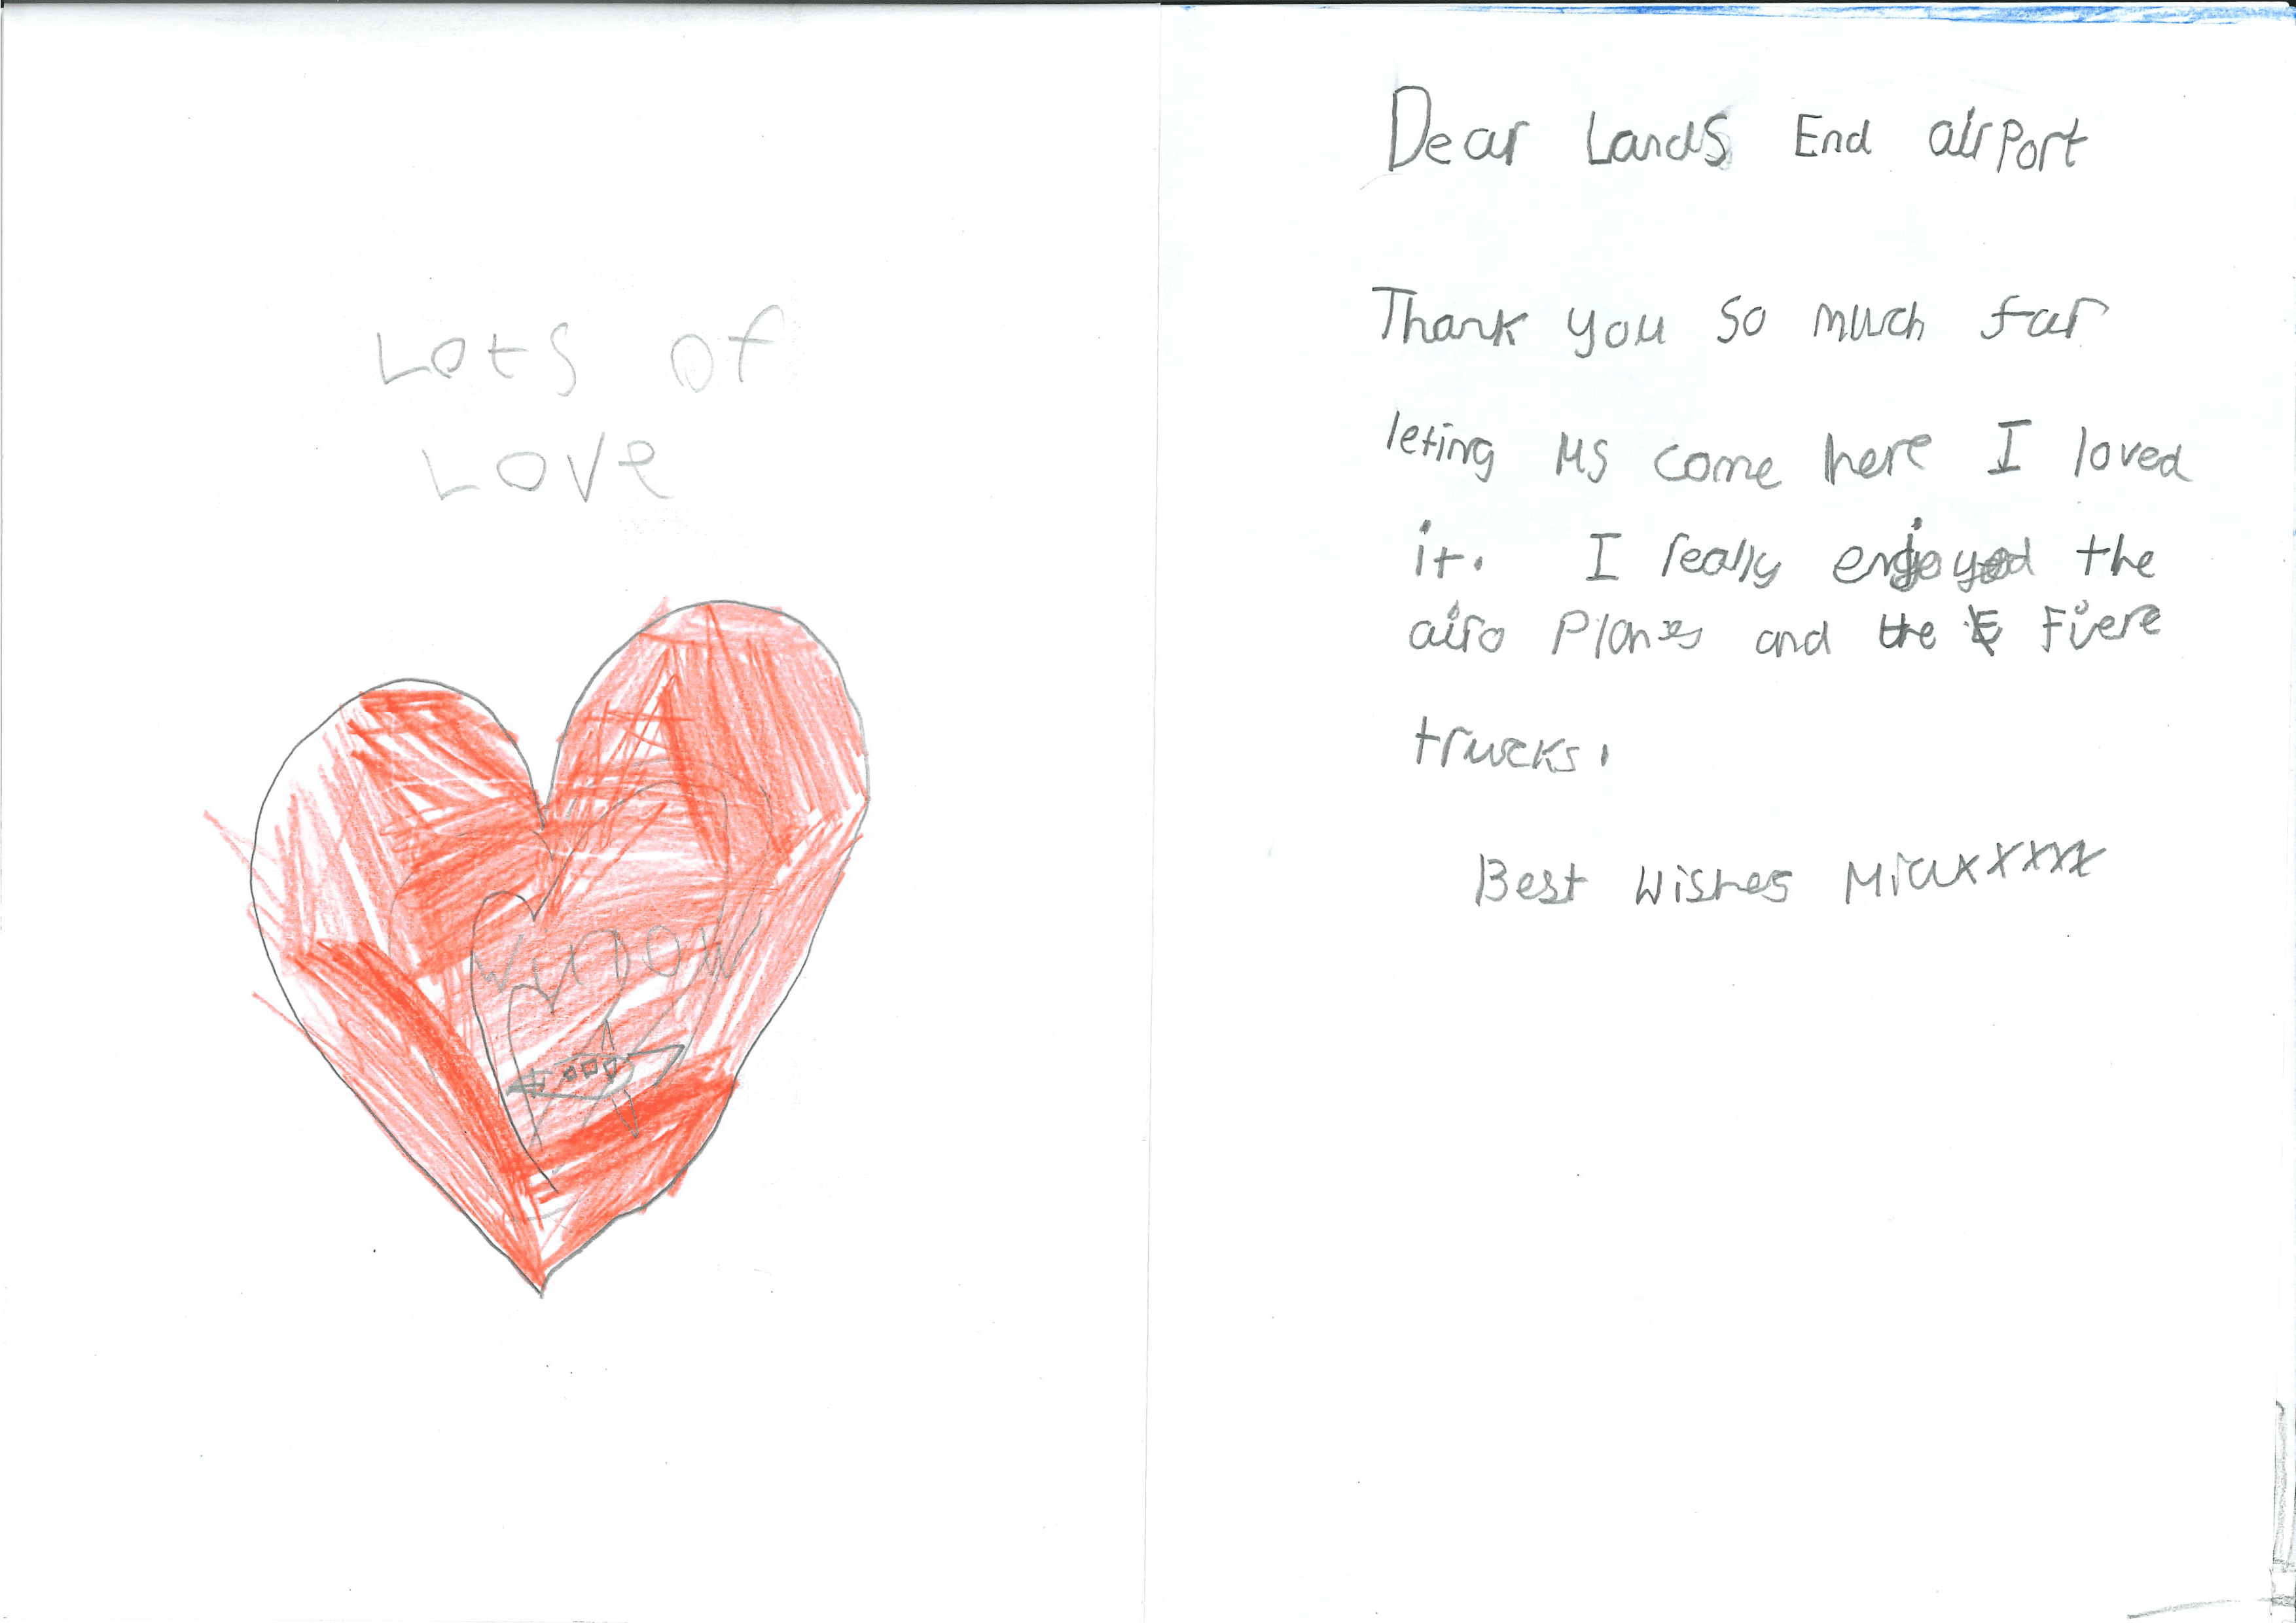 Lots of
Love
Dear Lands End airPort
Thank you so much far
leting us come here I loved
it. I really enjoyed the
airo Planes and the Fiere
trucks.
Best Wishes Miaxxxxx